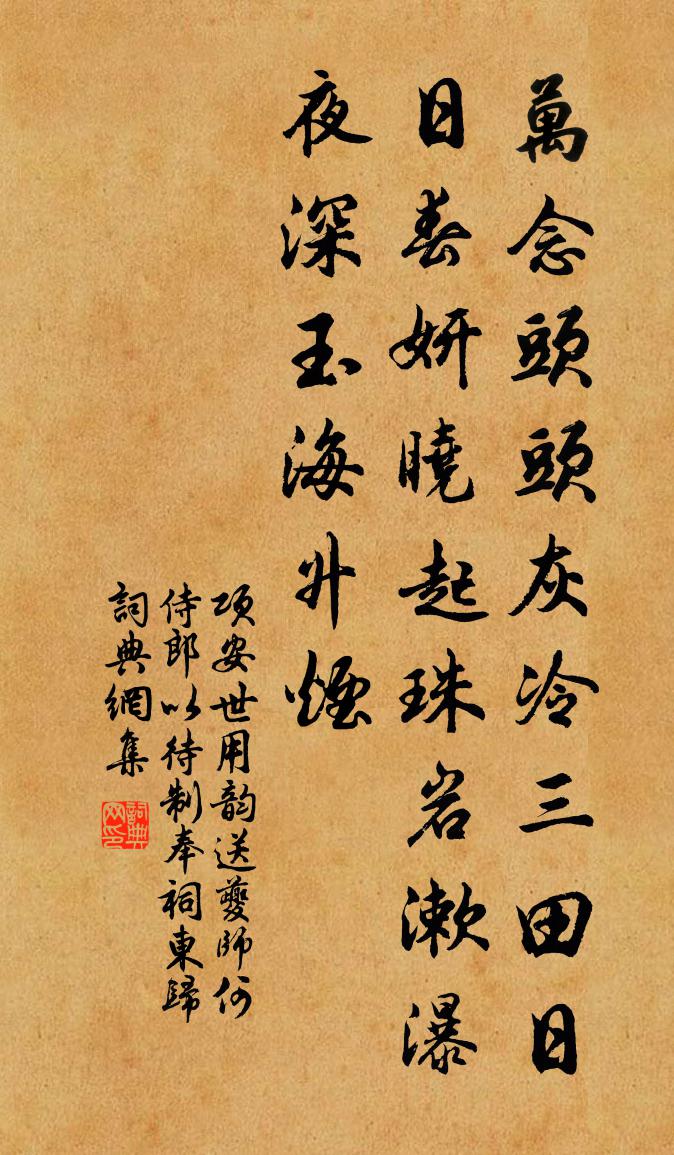 萬念頭頭灰冷三田日
日春妍曉起珠岩漱瀑
夜深玉海升煙
項安世用韵送夔師何
侍郎以待制奉祠東歸
詞典網集
詞典
网印